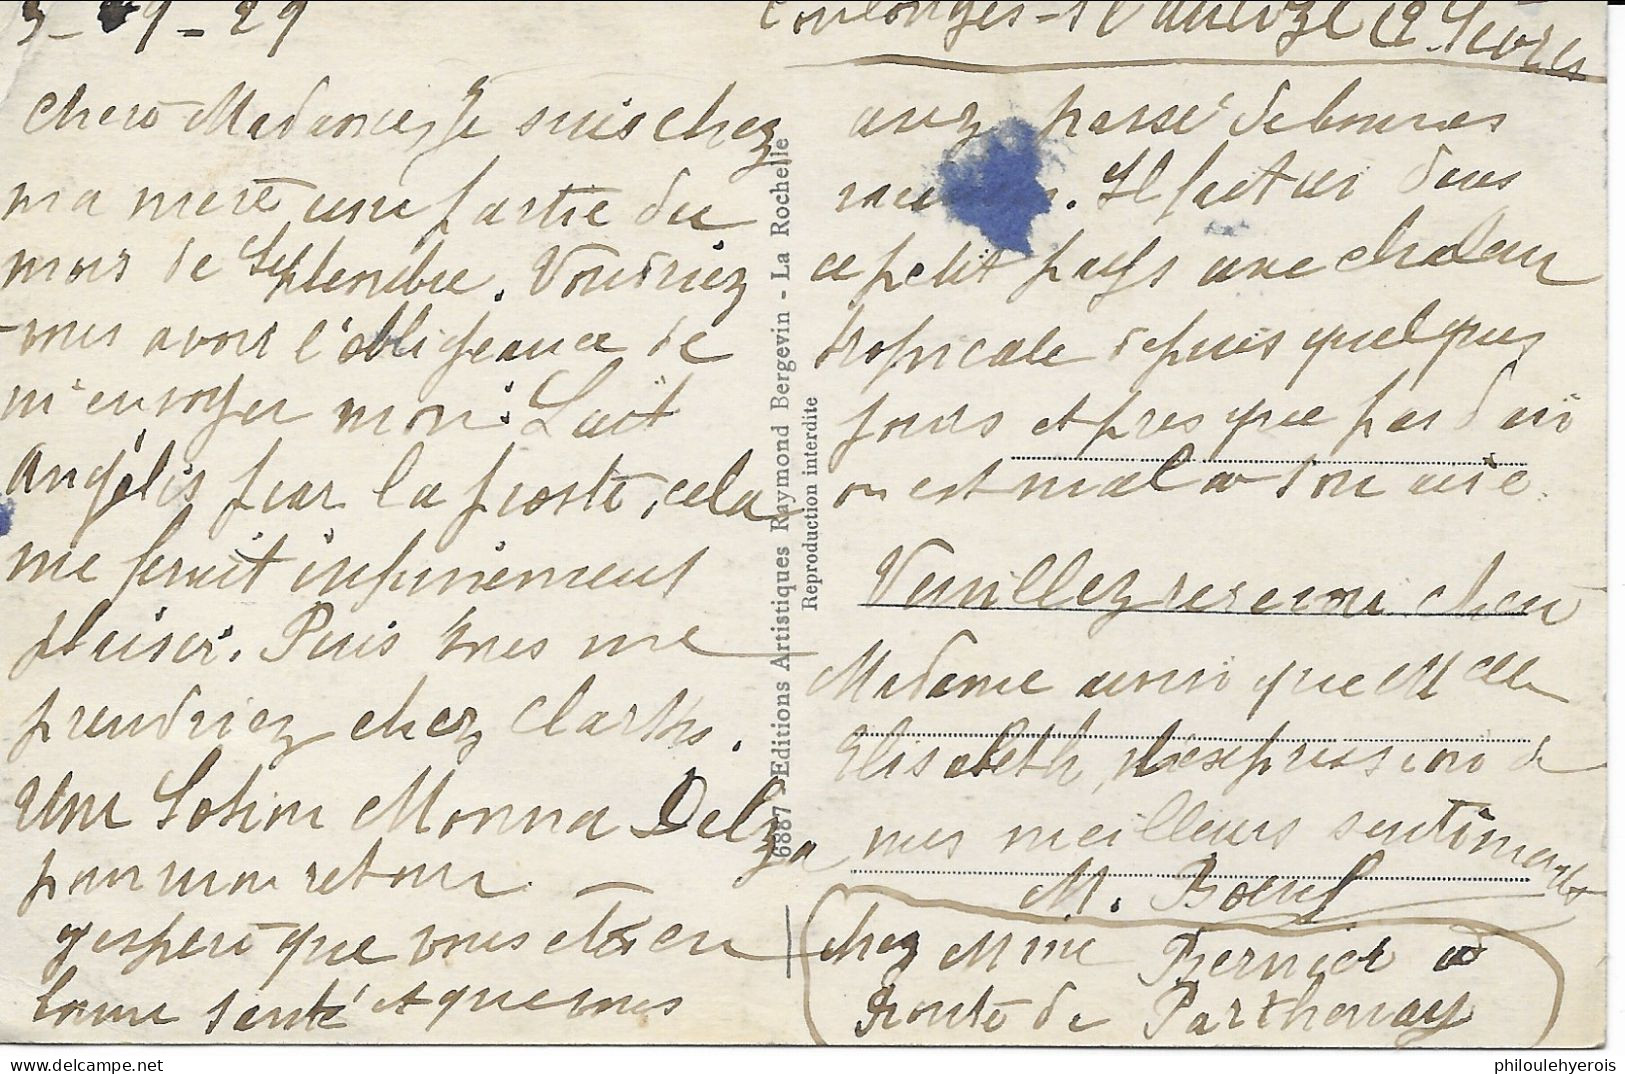 3-9-29
Coulonges-s/l'autize (2 Sèvres
Chère Madame, Je suis chez
ma mère une partie du
mois de Septembre. Voudriez
vous avoir l'obligeance de
m'envoyer mon Lait
Angélis par la poste, cela
me ferait infiniement
plaisir. Puis vous me
prendriez chez Clarks.
Une Lotion Monna Delza
pour mon retour
J'espère que vous êtes en
bonne santé et que vous
avez passé de bonnes
Il fait ici dans
ce petit pays une chaleur
tropicale depuis quelques
jours et presque pas d'air
on est mal à son aise.
Veuillez recevoir chère
Madame ainsi que Melle
Elisabeth, l'expression de
mes meilleurs sentiments
M. Boeuf
chez Mme Bernier
Route de Parthenay
6887 - Editions Artistiques Raymond Bergevin - La Rochelle
Reproduction interdite
philoulehyerois